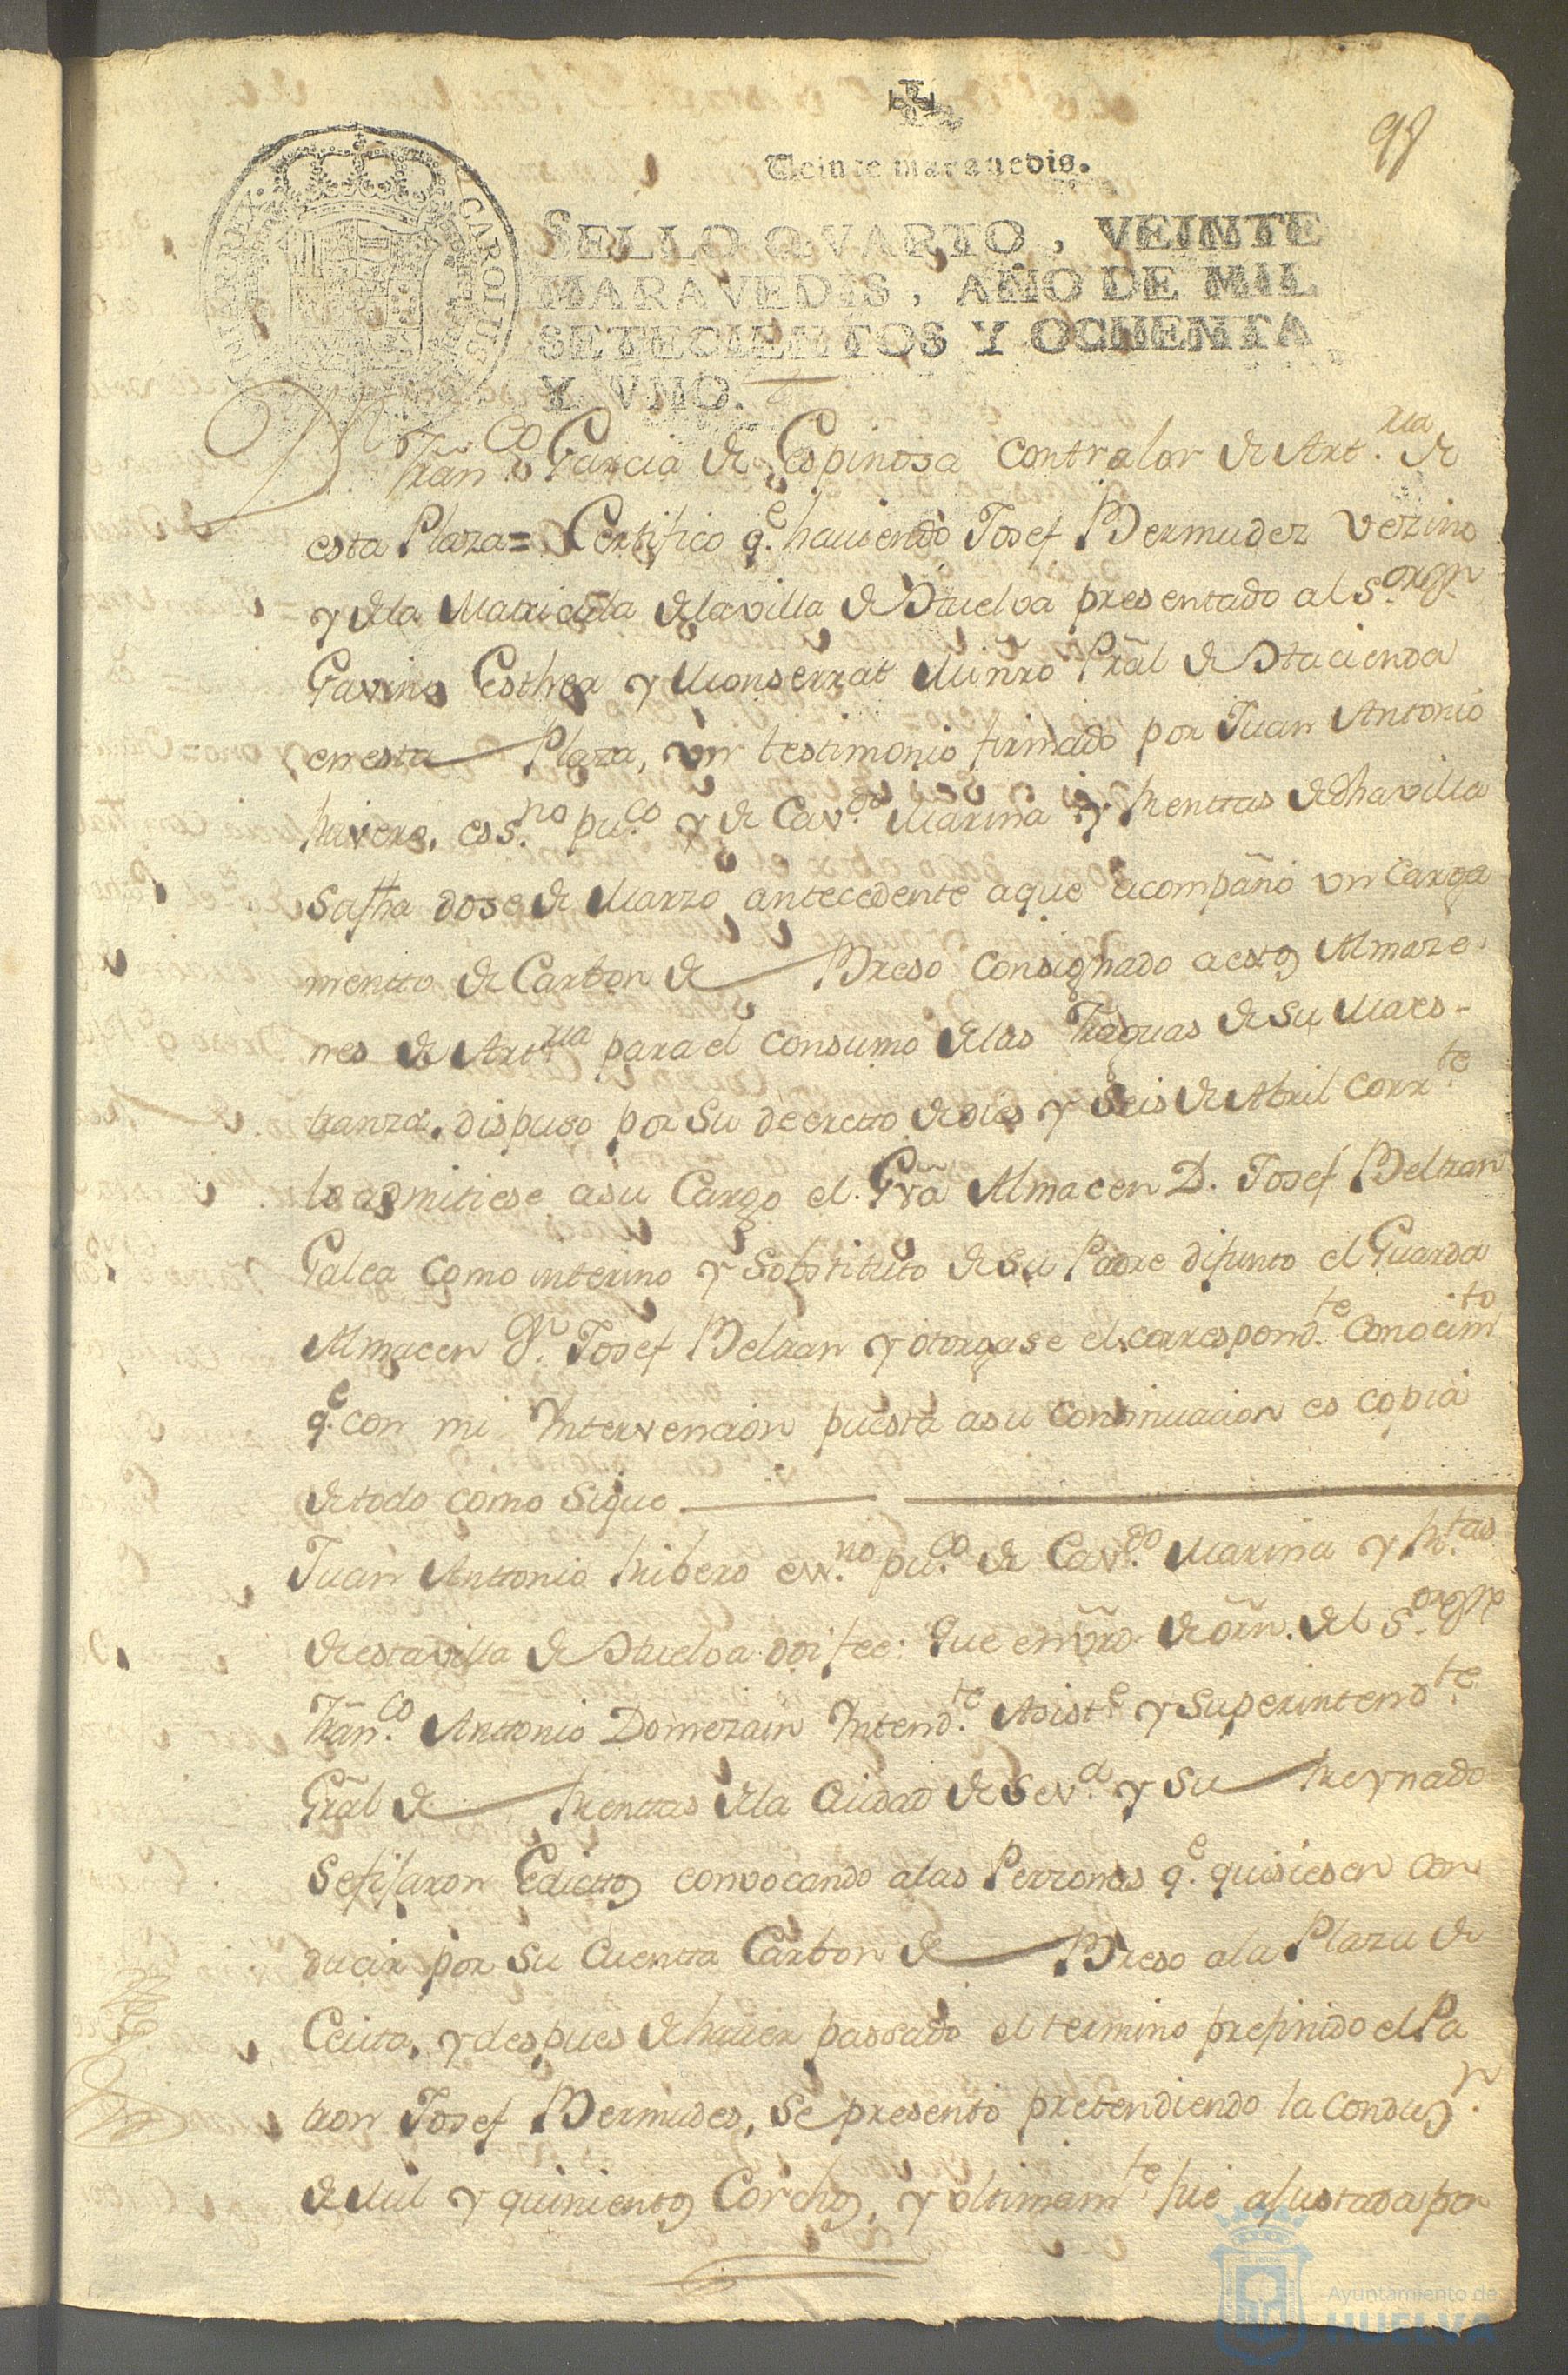 98
Veinte maravedis.
SELLO QVARTO, VEINTE
MARAVEDIS, AÑO DE MIL
SETECIENTOS Y OCHENTA
Y VNO.
CAROLUS
Dn Fran.co Garcia de Espinosa Contralor de Art.ria de
esta Plaza = Certifico q.e hauiendo Josef Bermudez Vezino
y de la Matricula de la villa de Huelva presentado al S.or Dn
Gavino Esther y Monserrat Miñro Pral de Hacienda
en esta Plaza, vn testimonio firmado por Juan Antonio
Rivero, ess.no pu.co y de Cav.do Marina y Renttas de dha villa
Su fha dose de Marzo antecedente a que acompañó vn Carga
mentto de Carbon de Breso Consignado a estos Almaze
nes de Art.ria para el Consumo de las Fraguas de su Maes-
tranza, dispuso por Su decretto de dies y Seis de Abril Corr.te
lo admitiese a su Cargo el Gra Almacen D. Josef Beltran
Galea como interino y Sobstituto de su Padre difunto el Guarda
Almacen Dn Josef Beltran y otorgase el correspond.te Conocim.to
q.e con mi Yntervencion puesta a su Continuacion es copia
de todo como Sigue
Juan Anttonio Ribero ess.no pu.co de Cav.do Marina y R.tas
de esta villa de Huelva doi fee: Que en vrd de orn. del S.or Dn
Fran.co Anttonio Domezain Yntend.te Asist.e y Superintend.te
Gral de Renttas de la Ciudad de Sev.a y su Reynado
Se fijaron Edicttos convocando a las Perzonas q.e quisiesen Con
ducir por su Cuentta Carbon de Breso a la Plaza de
Ceuta, y despues de hauer passado el termino prefinido el Pa
tron Josef Bermudes, se presentó pretendiendo la Conduz.n
de Mil y quinientos Corchos, y vltimam.te fue ajustada por
Ayuntamiento de
HUELVA